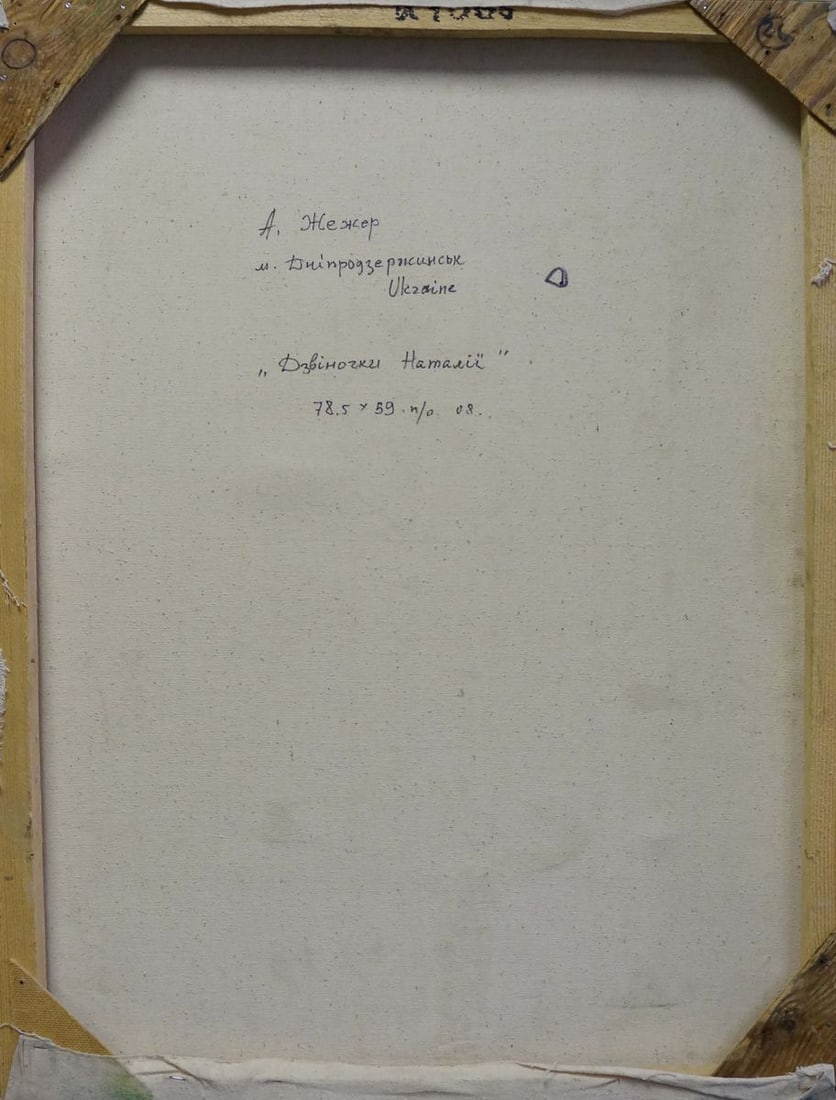 А. Жежер
м. Дніпродзержинськ
Ukraine
„Дзвіночки Наталії"
78.5 × 59 п/о 08.